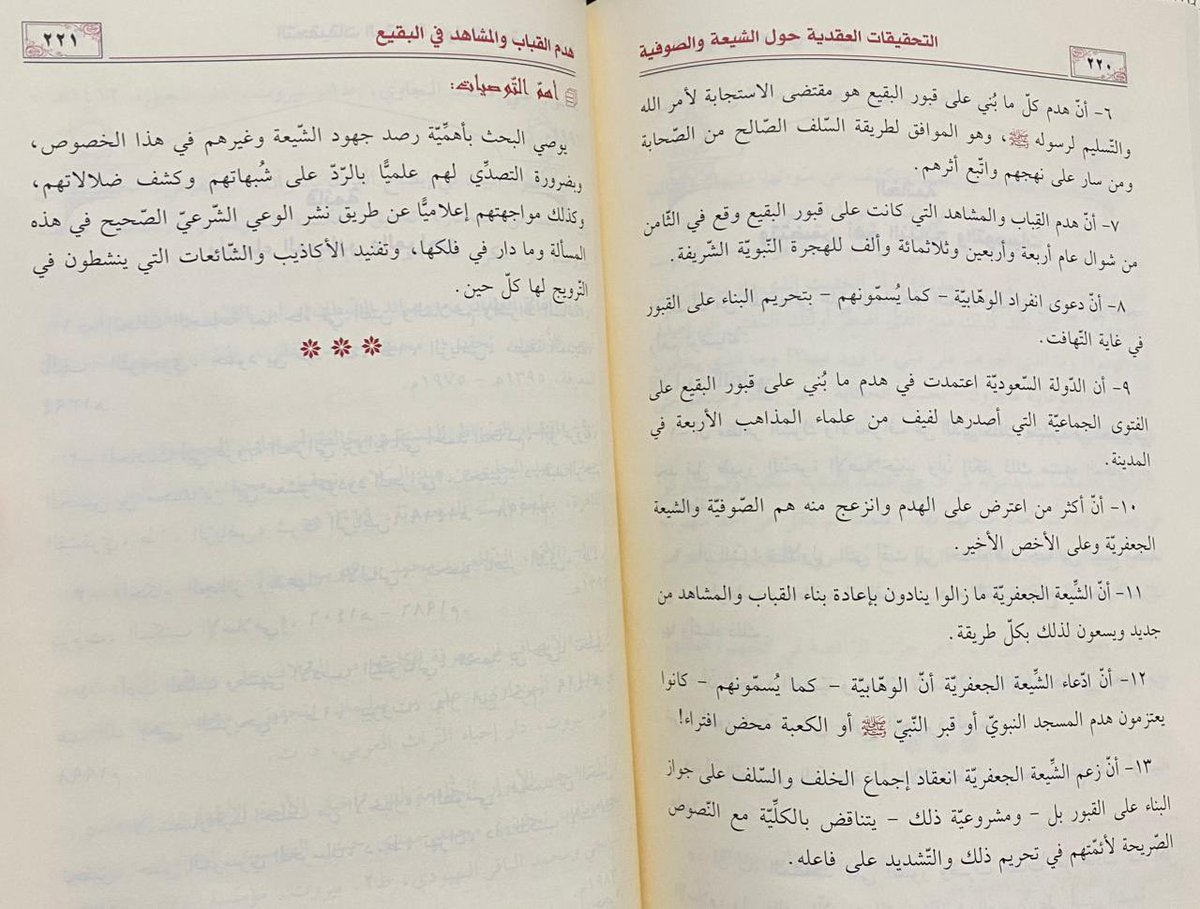 التحقيقات العقدية حول الشيعة والصوفية
٢٢٠
٦- أنّ هدم كلّ ما بُني على قبور البقيع هو مقتضى الاستجابة لأمر الله
والتّسليم لرسوله ﷺ، وهو الموافق لطريقة السّلف الصّالح من الصّحابة
ومن سار على نهجهم واتّبع أثرهم.
٧- أنّ هدم القِباب والمشاهد التي كانت على قبور البقيع وقع في الثّامن
من شوال عام أربعة وأربعين وثلاثمائة وألف للهجرة النّبويّة الشّريفة.
٨- أنّ دعوى انفراد الوهّابيّة - كما يُسمّونهم - بتحريم البناء على القبور
في غاية التّهافت.
٩- أن الدّولة السّعوديّة اعتمدت في هدم ما بُني على قبور البقيع على
الفتوى الجماعيّة التي أصدرها لفيف من علماء المذاهب الأربعة في
المدينة.
١٠- أنّ أكثر من اعترض على الهدم وانزعج منه هم الصّوفيّة والشيعة
الجعفريّة وعلى الأخص الأخير.
١١- أنّ الشِّيعة الجعفريّة ما زالوا ينادون بإعادة بناء القباب والمشاهد من
جديد ويسعون لذلك بكلّ طريقة.
١٢- أنّ ادّعاء الشِّيعة الجعفريّة أنّ الوهّابيّة - كما يُسمّونهم - كانوا
يعتزمون هدم المسجد النبويّ أو قبر النّبيّ ﷺ أو الكعبة محض افتراء!
١٣- أنّ زعم الشِّيعة الجعفريّة انعقاد إجماع الخلف والسّلف على جواز
البناء على القبور بل - ومشروعيّة ذلك - يتناقض بالكلِّيّة مع النّصوص
الصّريحة لأئمّتهم في تحريم ذلك والتّشديد على فاعله.
هدم القباب والمشاهد في البقيع
٢٢١
أهمّ التّوصيات:
يوصي البحث بأهمِّيّة رصد جهود الشّيعة وغيرهم في هذا الخصوص،
وبضرورة التصدِّي لهم علميًّا بالرّدّ على شُبهاتهم وكشف ضلالاتهم،
وكذلك مواجهتهم إعلاميًّا عن طريق نشر الوعي الشّرعيّ الصّحيح في هذه
المسألة وما دار في فلكها، وتفنيد الأكاذيب والشّائعات التي ينشطون في
التّرويج لها كلّ حين.